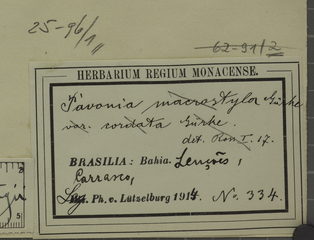 25-96/1
62-91/2
HERBARIUM REGIUM MONACENSE.
Pavonia macrostyla Gürke
var. cordata Gürke.
det. I. 17.
BRASILIA: Bahia. Lençois,
Carrasco,
Lg. Ph. v. Lützelburg 1914 No. 334.